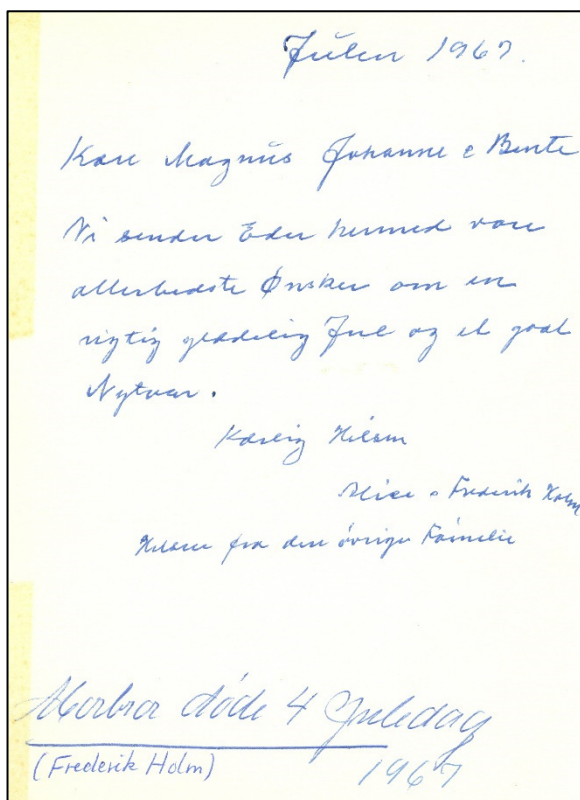 Julen 1967.
Kære Magnus Johanne & Bente
Vi sender Eder hermed vore
allerbedste Ønsker om en
rigtig glædelig Jul og et godt
Nytaar.
Kærlig Hilsen
Alice & Frederik Holm
Hilsen fra den øvrige Familie
Morbror døde 4 Juledag
(Frederik Holm) 1967